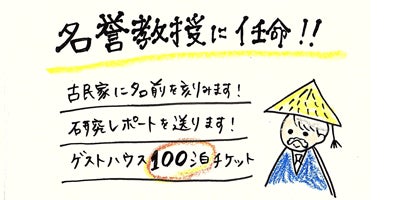 名誉教授に任命!!
古民家に名前を刻みます!
研究レポートを送ります!
ゲストハウス100泊チケット